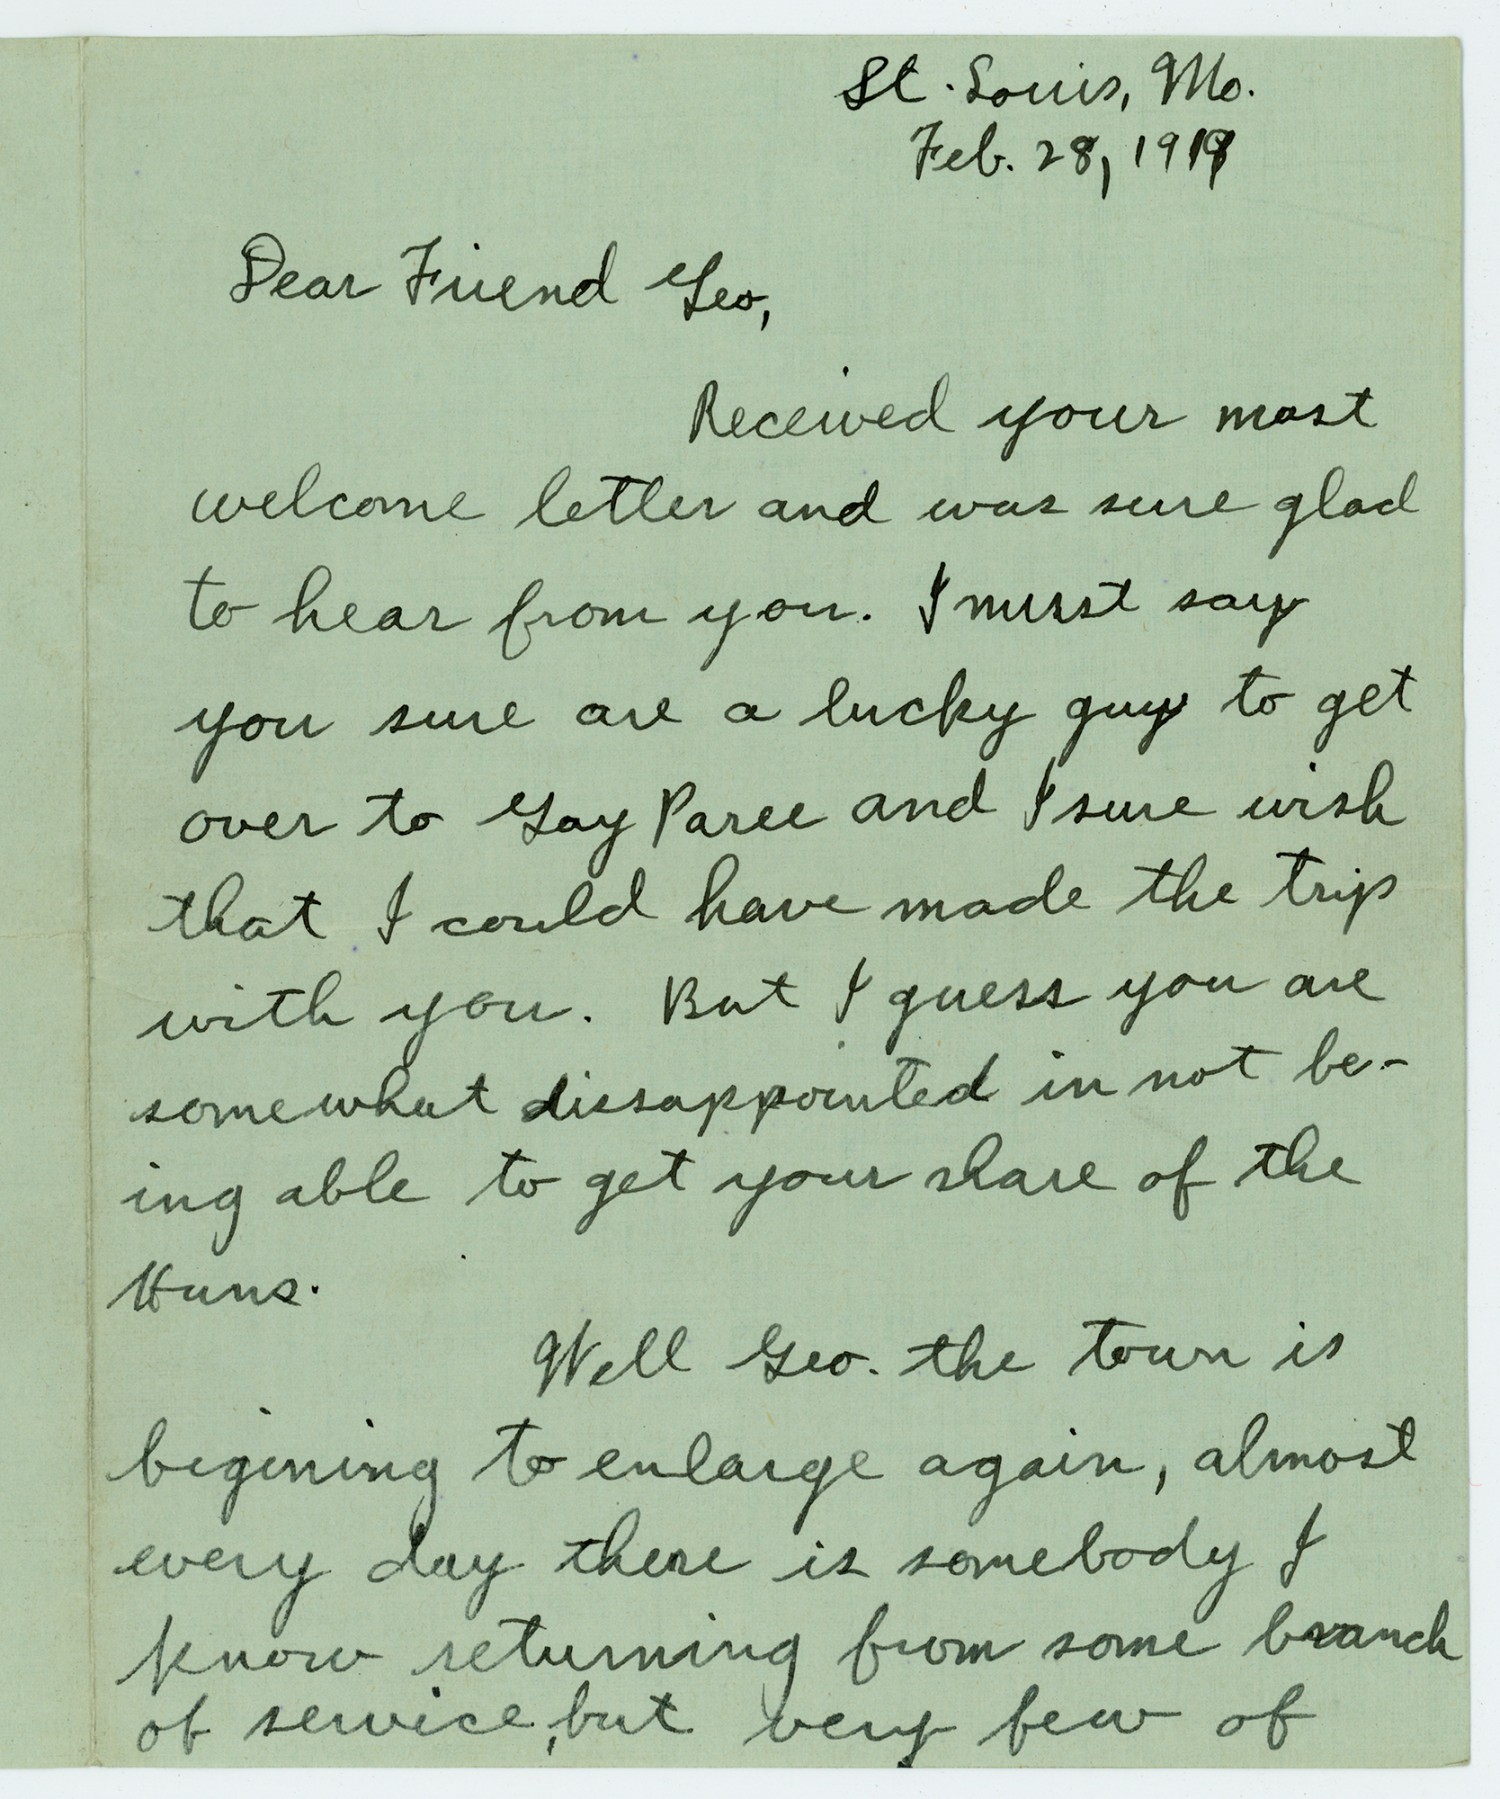 St. Louis, Mo.
Feb. 28, 1919
Dear Friend Geo,
Received your most
welcome letter and was sure glad
to hear from you. I must say
you sure are a lucky guy to get
over to Gay Paree and I sure wish
that I could have made the trip
with you. But I guess you are
somewhat dissappointed in not be-
ing able to get your share of the
Huns.
Well Geo. the town is
begining to enlarge again, almost
every day there is somebody I
know returning from some branch
of service, but very few of